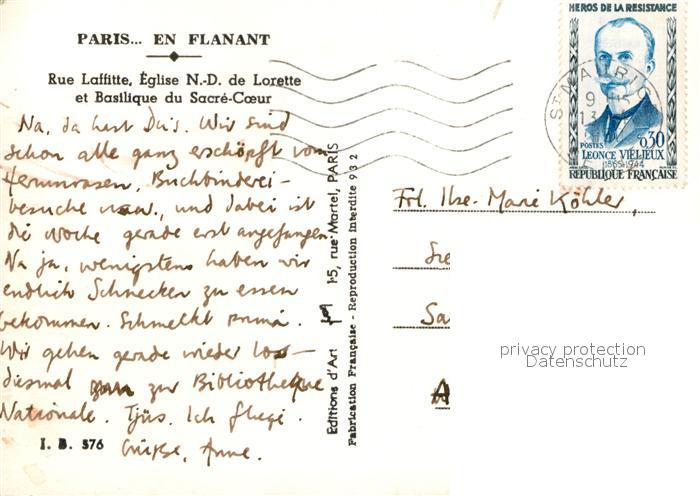 PARIS... EN FLANANT
Rue Laffitte, Église N.-D. de Lorette
et Basilique du Sacré-Cœur
Na, da hast Du's. Wir sind
schon alle ganz erschöpft vom
Herumrasen, Buchbinderei-
besuche usw., und dabei ist
die Woche gerade erst angefangen.
Na ja, wenigstens haben wir
endlich Schnecken zu essen
bekommen. Schmeckt prima.
Wir gehen gerade wieder los –
diesmal zur Bibliothèque
Nationale. Tjüs. Ich fliege.
Grüße, Anne.
I. B. 576
Editions d'Art 15, rue Martel, PARIS
Fabrication Française - Reproduction Interdite 932
HEROS DE LA RESISTANCE
POSTES
0,30
LEONCE VIELJEUX
1865-1944
REPUBLIQUE FRANÇAISE
Frl. Ilse-Marie Köhler,
Sa
A
privacy protection
Datenschutz